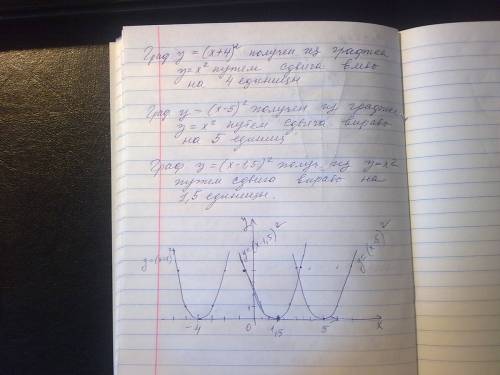 Граф y = (x+4)² получен из графика
y=x² путем сдвига влево
на 4 единицы
Граф y = (x-5)² получен из графика
y = x² путем сдвига вправо
на 5 единиц
Граф y = (x-1,5)² получ. из y=x²
путем сдвига вправо на
1,5 единицы.
y
y=(x-1,5)²
y=(x-5)²
-4
0
1,5
5
x